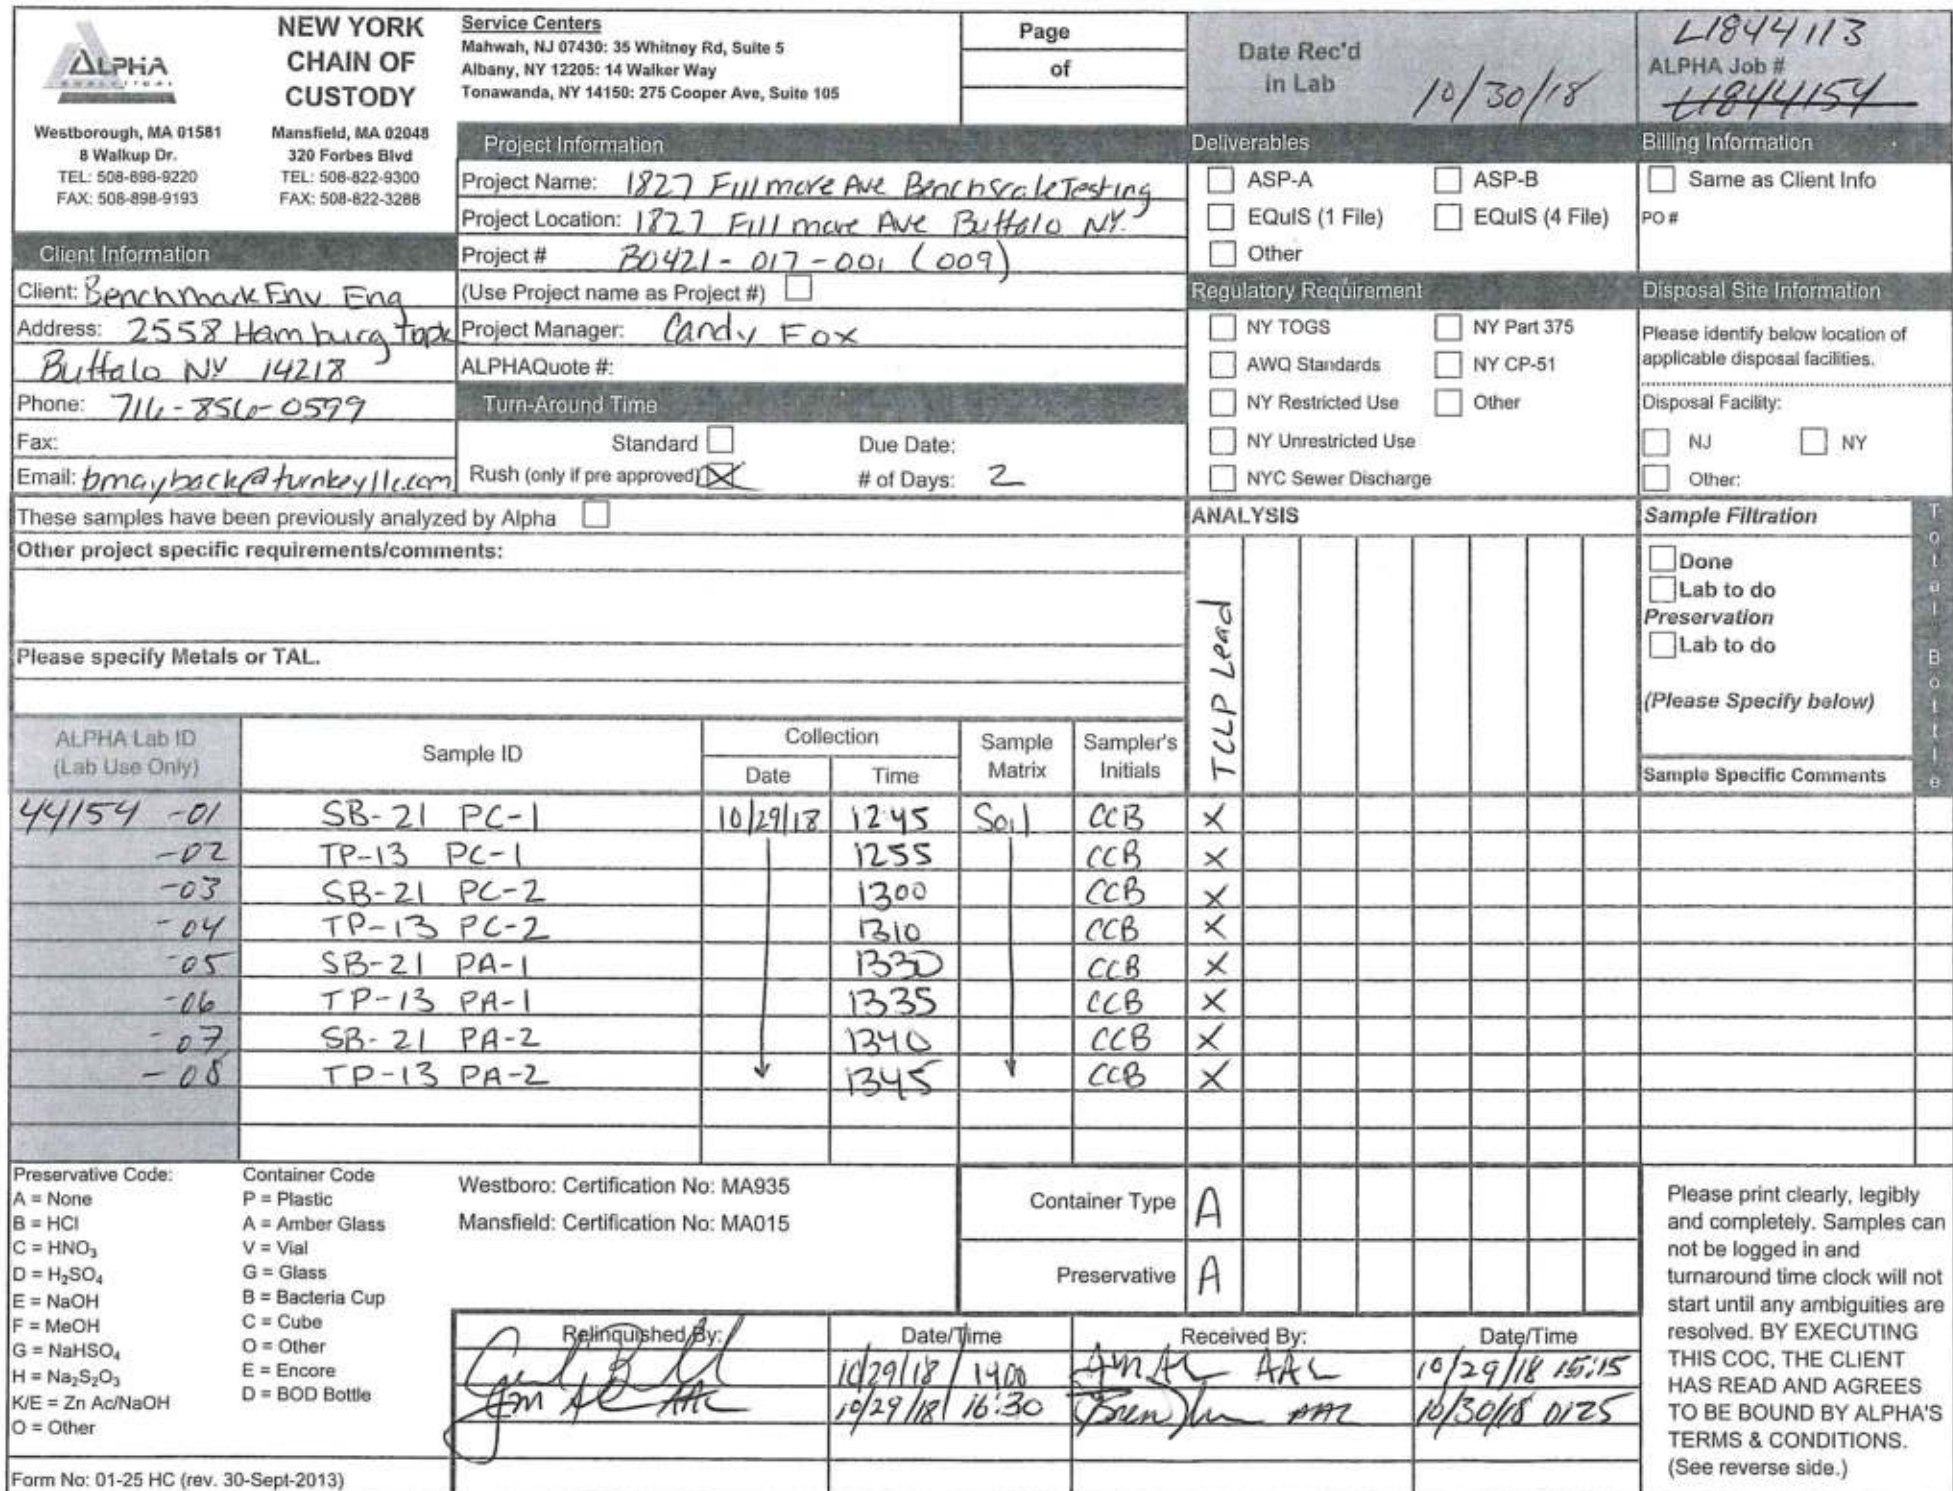 ALPHA
ANALYTICAL
Westborough, MA 01581
8 Walkup Dr.
TEL: 508-898-9220
FAX: 508-898-9193
NEW YORK
CHAIN OF
CUSTODY
Mansfield, MA 02048
320 Forbes Blvd
TEL: 508-822-9300
FAX: 508-822-3288
Service Centers
Mahwah, NJ 07430: 35 Whitney Rd, Suite 5
Albany, NY 12205: 14 Walker Way
Tonawanda, NY 14150: 275 Cooper Ave, Suite 105
Page
of
Date Rec'd
in Lab
10/30/18
L1844113
ALPHA Job #
L1844154
Client Information
Client: Benchmark Env. Eng
Address: 2558 Hamburg Tnpk
Buffalo NY 14218
Phone: 716-856-0599
Fax:
Email: bmayback@turnkeyllc.com
Project Information
Project Name: 1827 Fillmore Ave Benchscale Testing
Project Location: 1827 Fillmore Ave Buffalo NY.
Project # B0421-017-001 (009)
(Use Project name as Project #)
Project Manager: Candy Fox
ALPHAQuote #:
Turn-Around Time
Standard Due Date:
Rush (only if pre approved) X # of Days: 2
Deliverables
ASP-A ASP-B
EQuIS (1 File) EQuIS (4 File)
Other
Regulatory Requirement
NY TOGS NY Part 375
AWQ Standards NY CP-51
NY Restricted Use Other
NY Unrestricted Use
NYC Sewer Discharge
Billing Information
Same as Client Info
PO #
Disposal Site Information
Please identify below location of
applicable disposal facilities.
Disposal Facility:
NJ NY
Other:
These samples have been previously analyzed by Alpha
Other project specific requirements/comments:
Please specify Metals or TAL.
ANALYSIS
TCLP Lead
Sample Filtration
Done
Lab to do
Preservation
Lab to do
(Please Specify below)
Sample Specific Comments
Total Bottle
ALPHA Lab ID
(Lab Use Only)
Sample ID
Collection
Date Time
Sample
Matrix
Sampler's
Initials
44154 -01 SB-21 PC-1 10/29/18 1245 Soil CCB X
-02 TP-13 PC-1 1255 CCB X
-03 SB-21 PC-2 1300 CCB X
-04 TP-13 PC-2 1310 CCB X
-05 SB-21 PA-1 1330 CCB X
-06 TP-13 PA-1 1335 CCB X
-07 SB-21 PA-2 1340 CCB X
-08 TP-13 PA-2 1345 CCB X
Preservative Code:
A = None
B = HCl
C = HNO₃
D = H₂SO₄
E = NaOH
F = MeOH
G = NaHSO₄
H = Na₂S₂O₃
K/E = Zn Ac/NaOH
O = Other
Container Code
P = Plastic
A = Amber Glass
V = Vial
G = Glass
B = Bacteria Cup
C = Cube
O = Other
E = Encore
D = BOD Bottle
Westboro: Certification No: MA935
Mansfield: Certification No: MA015
Container Type A
Preservative A
Relinquished By: Date/Time Received By: Date/Time
10/29/18 1400 AAL 10/29/18 15:15
AAL 10/29/18 16:30 10/30/18 0125
Please print clearly, legibly
and completely. Samples can
not be logged in and
turnaround time clock will not
start until any ambiguities are
resolved. BY EXECUTING
THIS COC, THE CLIENT
HAS READ AND AGREES
TO BE BOUND BY ALPHA'S
TERMS & CONDITIONS.
(See reverse side.)
Form No: 01-25 HC (rev. 30-Sept-2013)